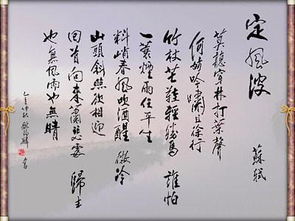 定風波
蘇軾
莫聽穿林打葉聲
何妨吟嘯且徐行
竹杖芒鞋輕勝馬 誰怕
一蓑煙雨任平生
料峭春風吹酒醒 微冷
山頭斜照欲相迎
回首向來蕭瑟處 歸去
也無風雨也無晴